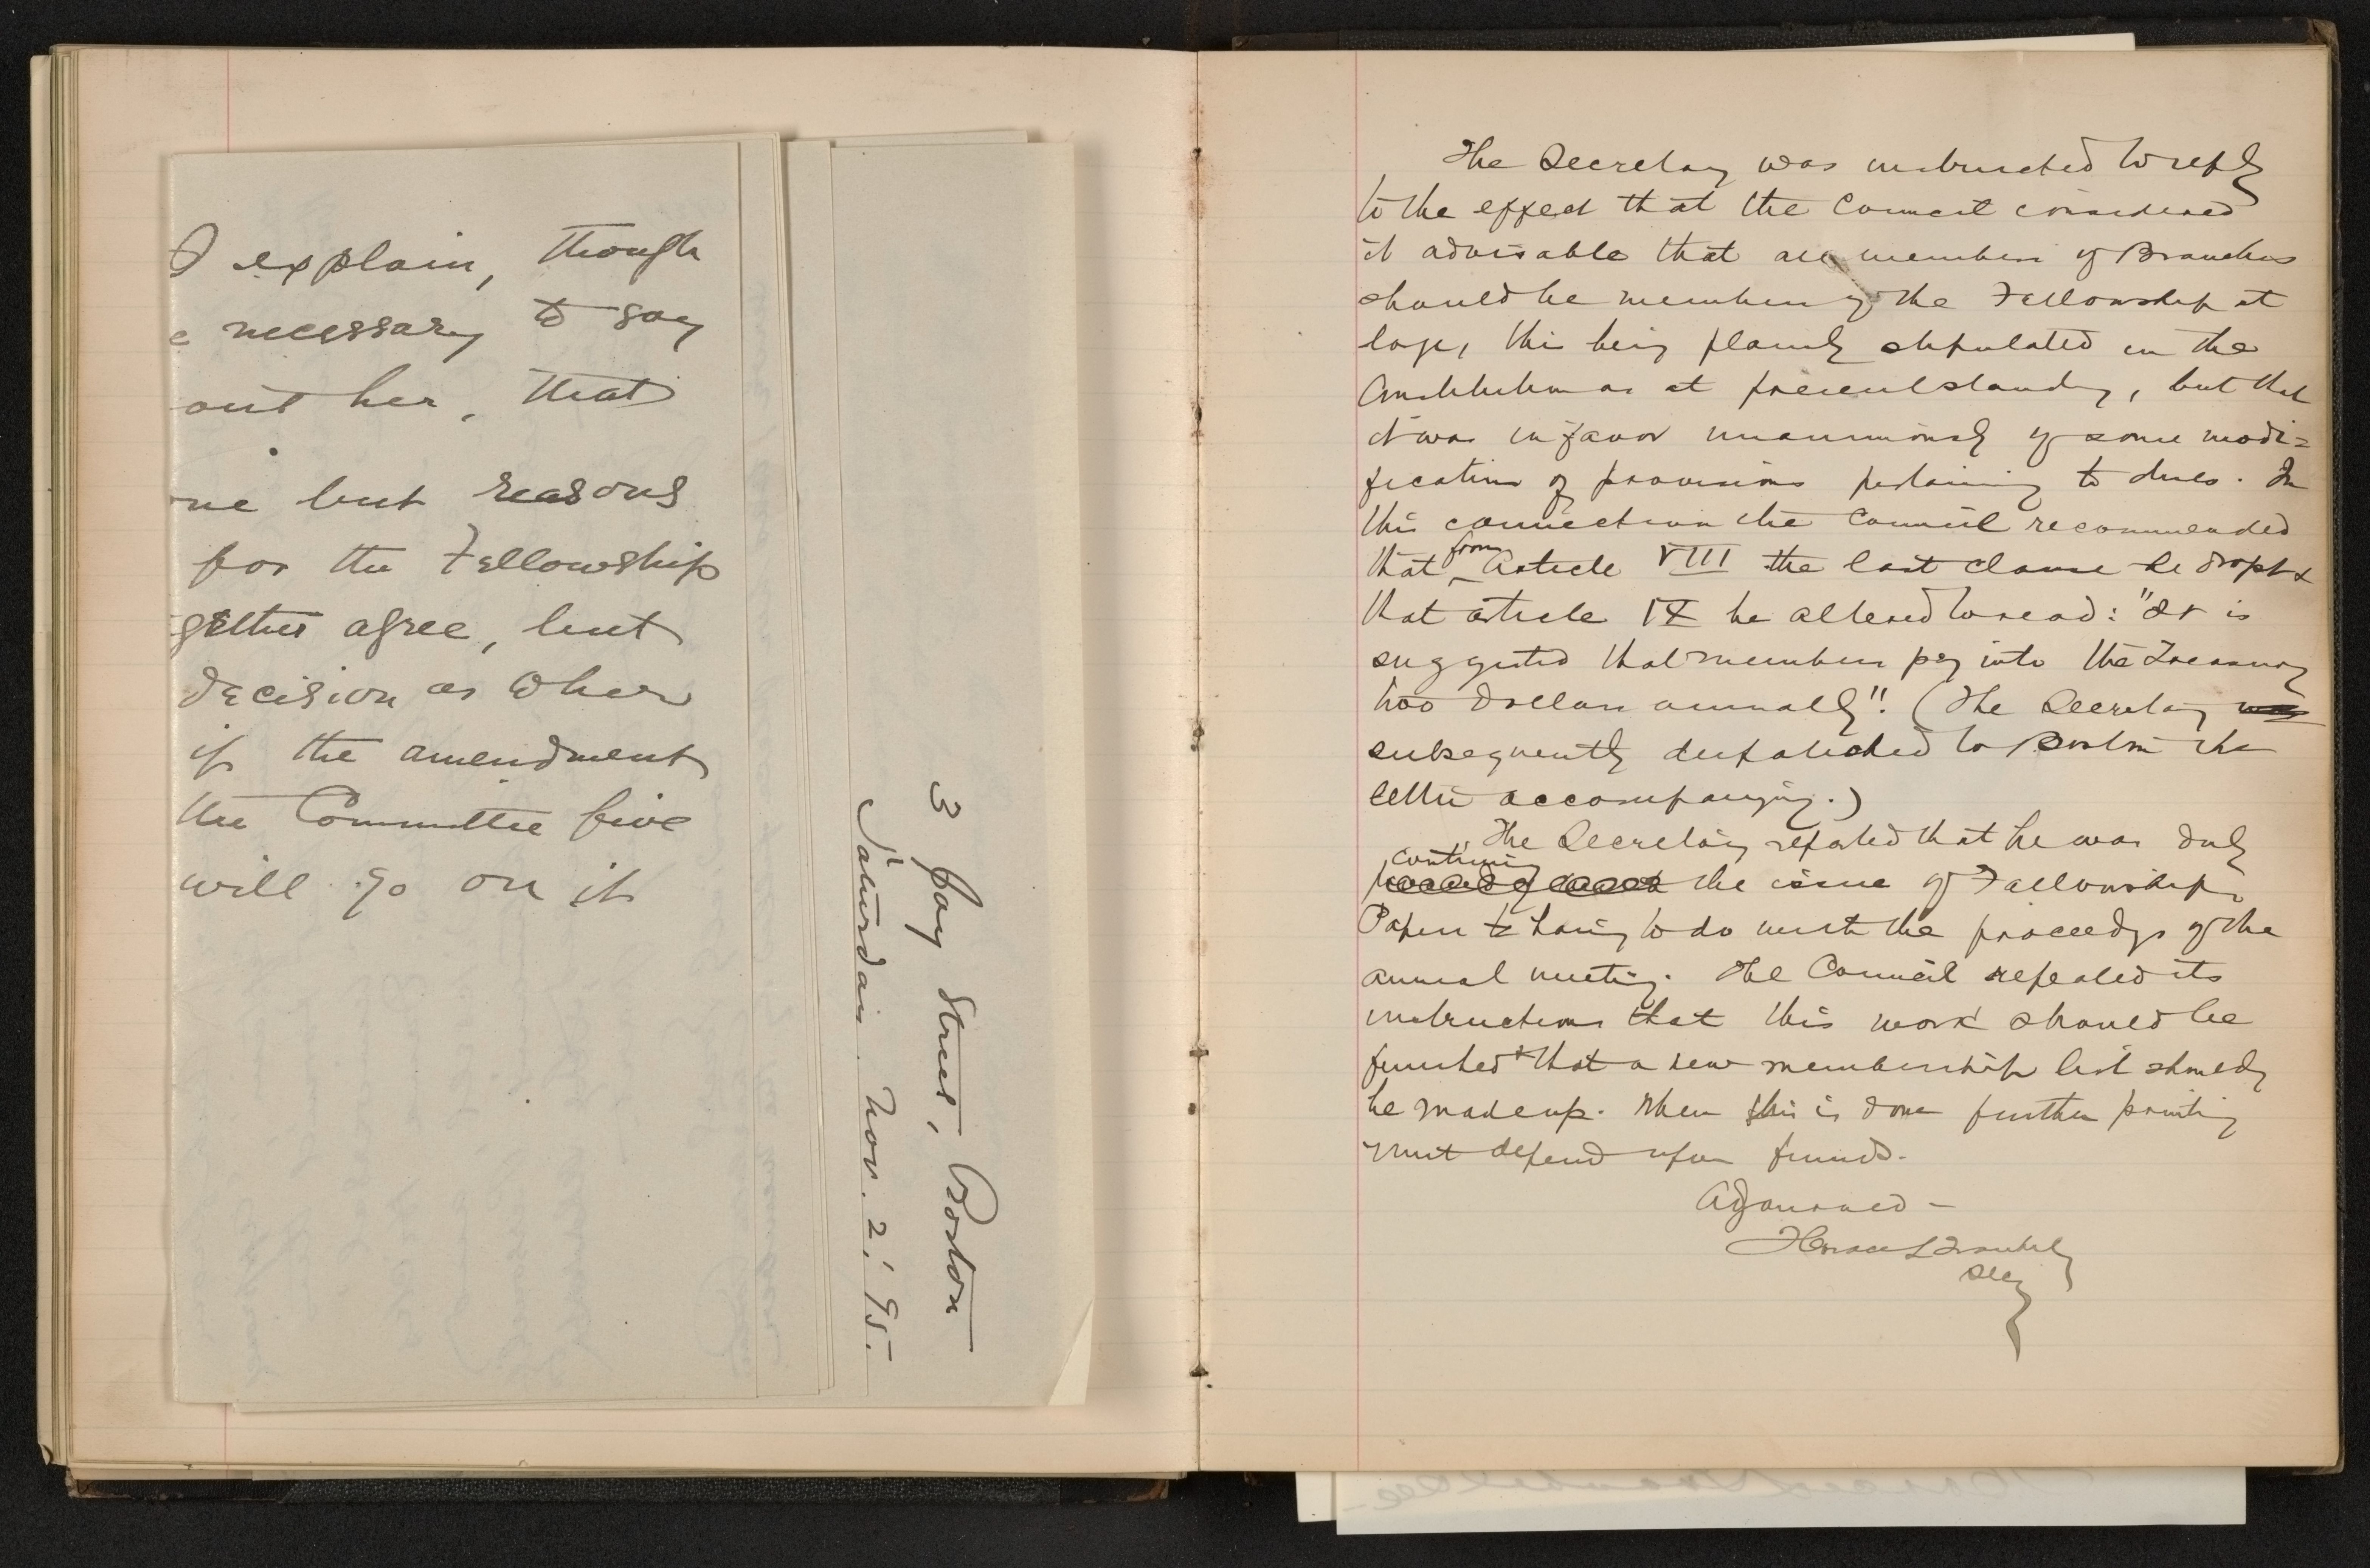 I explain, though
e necessary to say
out her, that
ne but reasons
for the Fellowship
gether agree, but
decision as when
if the amendment
the Committee five
will go on it
3 Joy Street, Boston
Saturday Nov. 2, '95.
The Secretary was instructed to reply
to the effect that the Council considered
it advisable that all members of Branches
should be members of the Fellowship at
large, this being plainly stipulated in the
Constitution as at present standing, but that
it was in favor unanimously of some modi=
fication of provisions pertaining to dues. In
this connection the Council recommended
that from Article VIII the last clause be dropt &
that article IX be altered to read: "It is
suggested that members pay into the Treasury
two dollars annually". (The Secretary was
subsequently dispatched to Boston the
letter accompanying.)
The Secretary reported that he was duly
continuing
the issue of Fellowship
Papers having to do with the proceedgs of the
annual meeting. The Council repeated its
instructions that this work should be
finished & that a new membership list should
be made up. When this is done further printing
must depend upon funds.
Adjourned –
Horace L Traubel
Secy